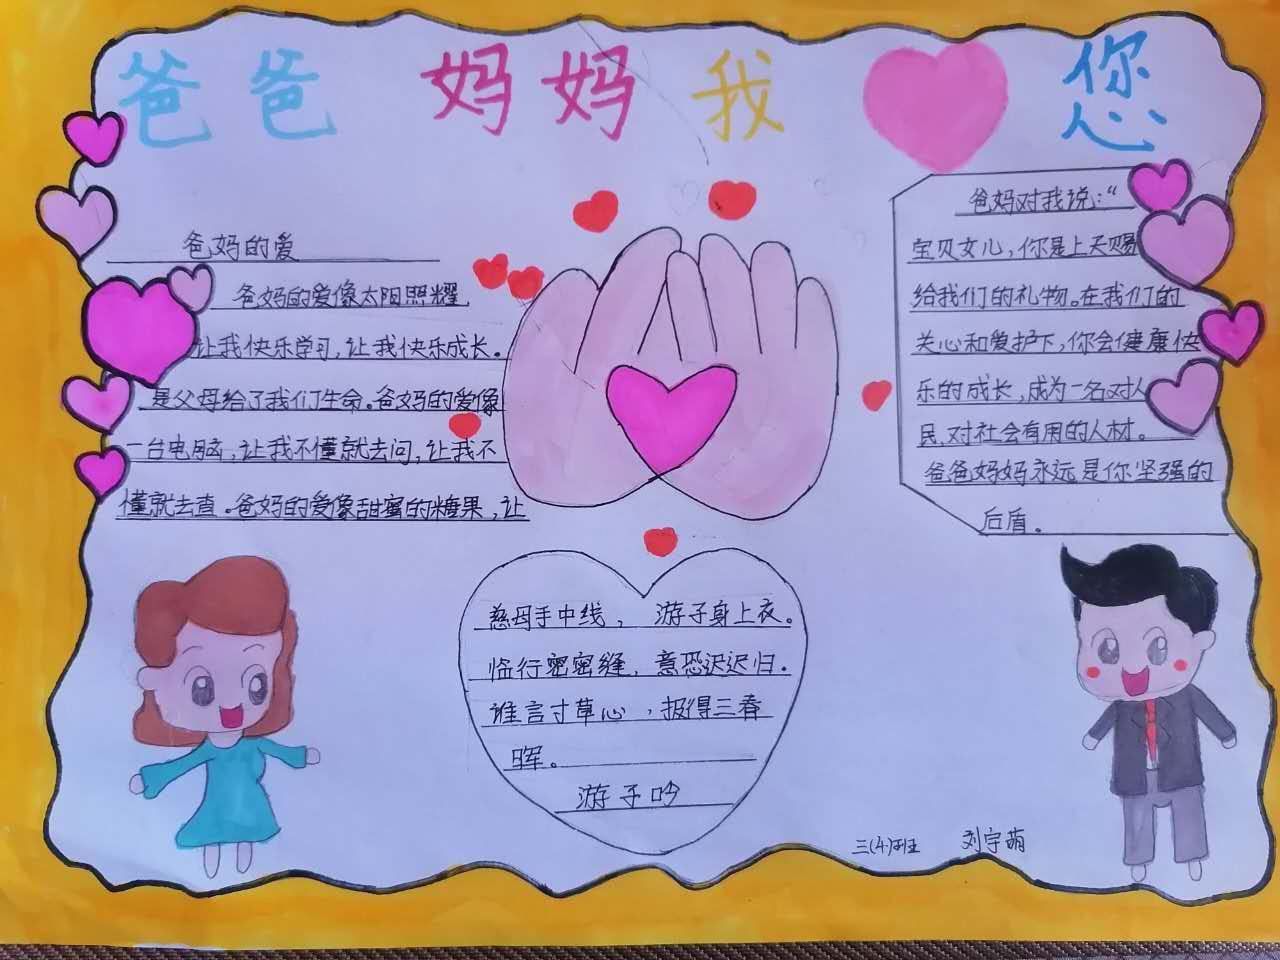 爸爸 妈妈 我 您
爸妈的爱
爸妈的爱像太阳照耀
让我快乐学习，让我快乐成长。
是父母给了我们生命。爸妈的爱像
一台电脑，让我不懂就去问，让我不
懂就去查。爸妈的爱像甜蜜的糖果，让
爸妈对我说：“
宝贝女儿，你是上天赐
给我们的礼物。在我们的
关心和爱护下，你会健康快
乐的成长，成为一名对人
民，对社会有用的人材。
爸爸妈妈永远是你坚强的
后盾。
慈母手中线，游子身上衣。
临行密密缝，意恐迟迟归。
谁言寸草心，报得三春
晖。
游子吟
三(4)班 刘宇萌